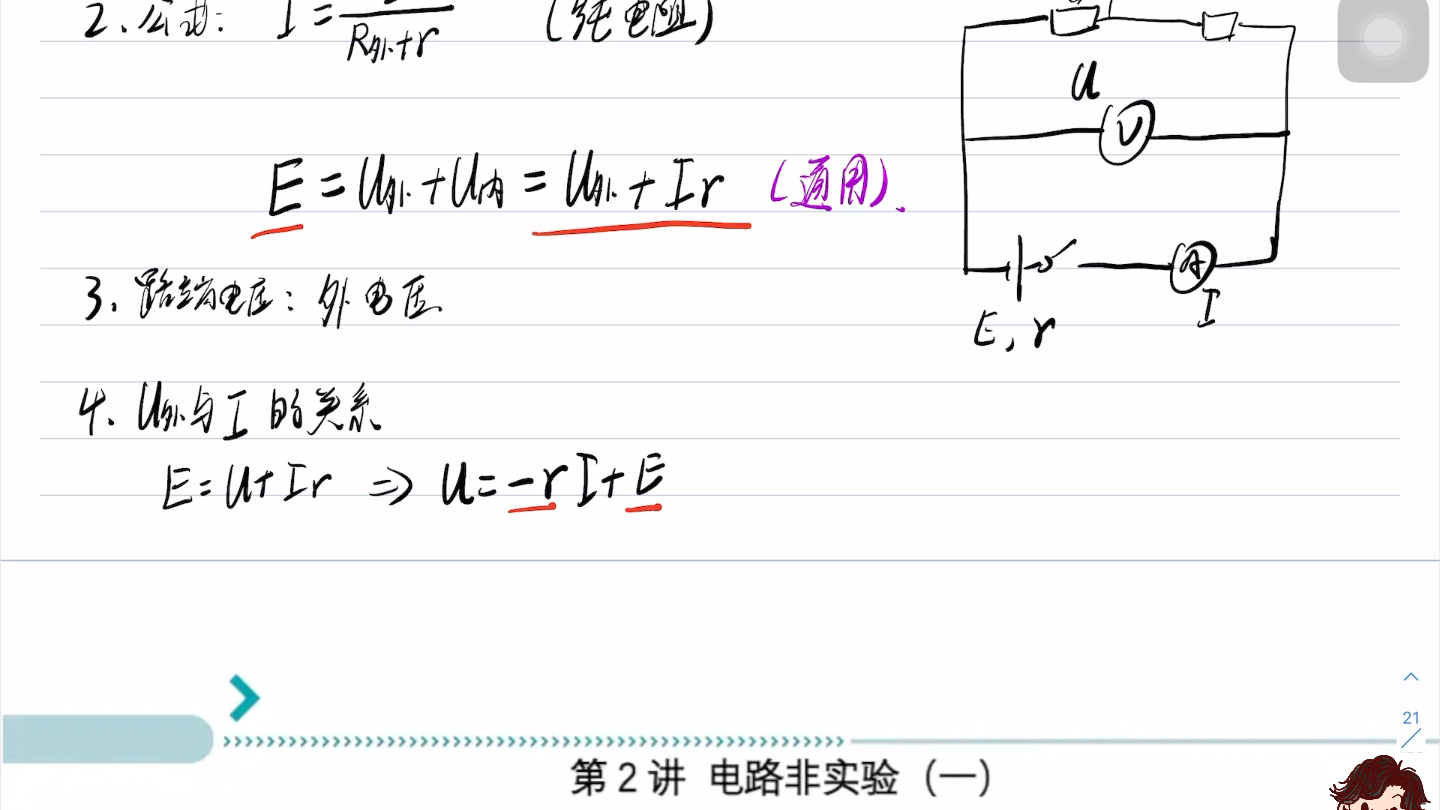 2、公式： I = ──── （纯电阻）
R外+r
U
V
E = U外 + U内 = U外 + Ir （通用）、
3、路端电压：外电压
A
I
E, r
4、U外与 I 的关系
E = U + Ir ⇒ U = -rI + E
21
第 2 讲 电路非实验（一）